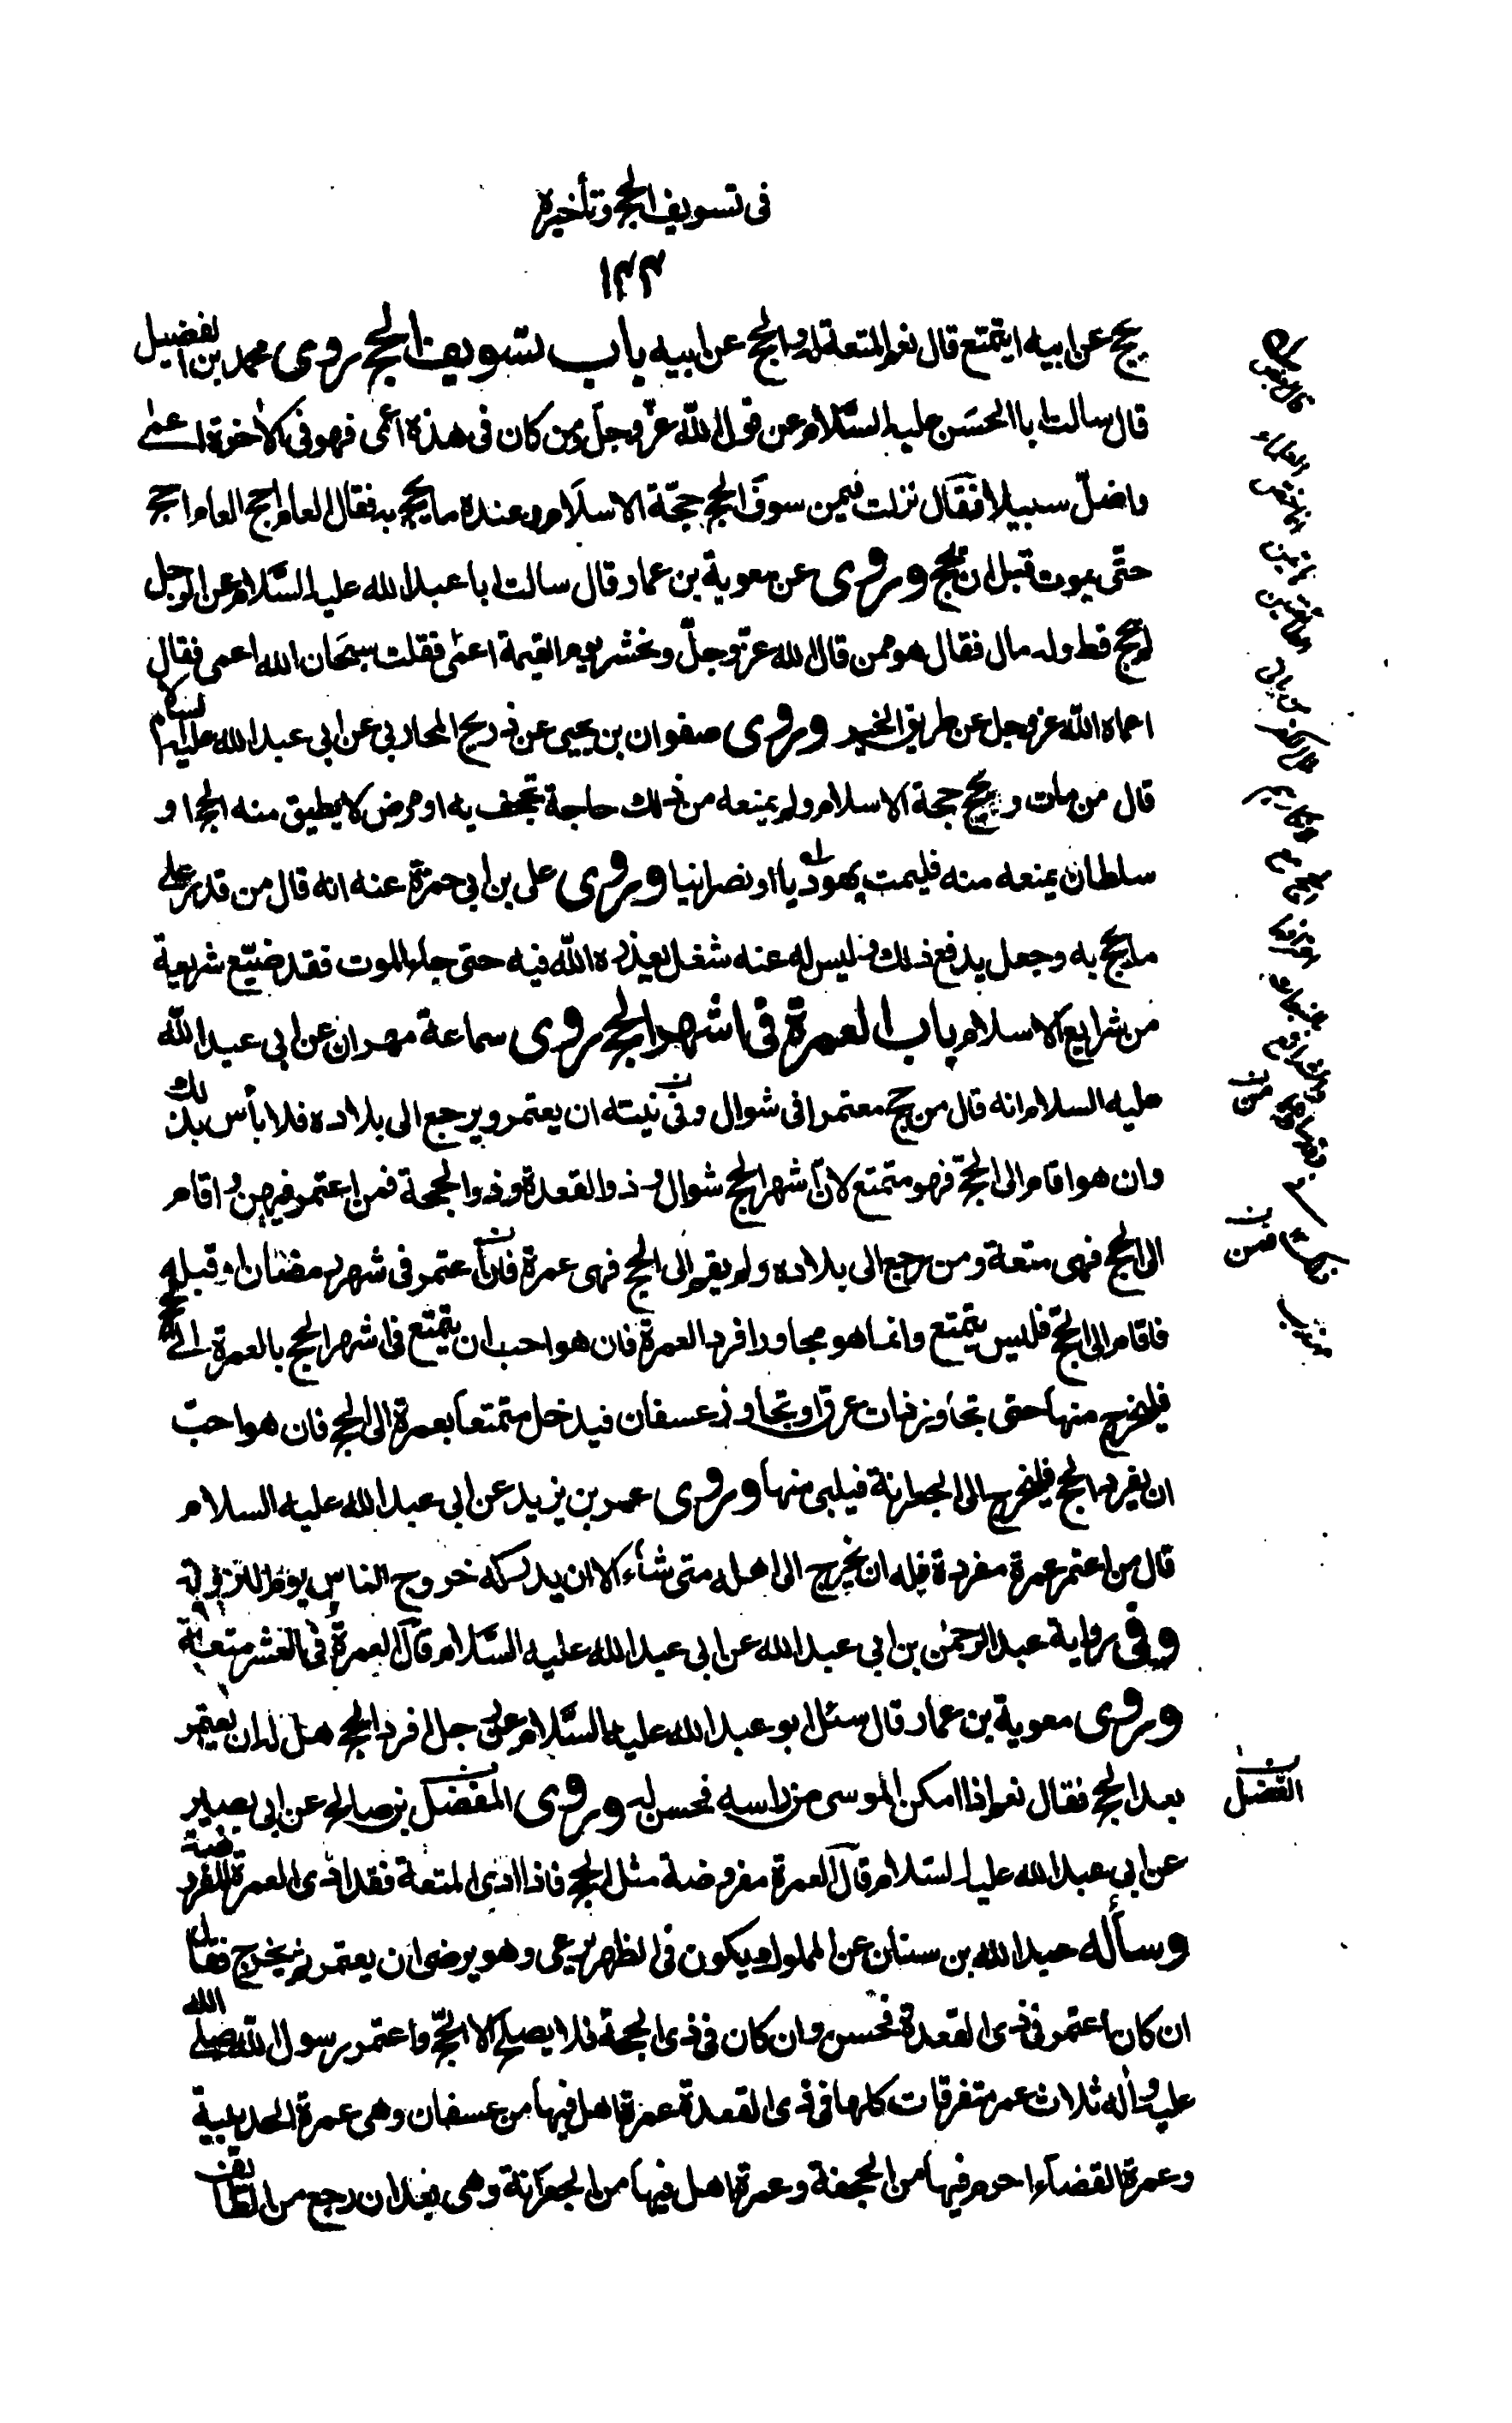 فى تسويف الحج وتأخيره
١٢٣
يحج عن ابيه ايتمتع قال نعم المتعة له والحج عن ابيه باب تسويف الحج روى محمد بن الفضيل
قال سالت ابا الحسَن عليه السَّلام عن قول اللّه عزّ وجلّ ومن كان فى هذه اعمى فهو فى الاخرة اعمى
واضلّ سبيلا فقال نزلت فيمن سوفَ الحج حجّة الاسلام وعنده ما يحج به فقال العام احج العام احج
حتّى يموت قبل ان يحج وروى عن معوية بن عمار قال سالت ابا عبد الله عليه السَّلام عن الرجل
لم يحج قط وله مال فقال هو ممن قال الله عزّ وجلّ ونحشره يوم القيمة اعمى فقلت سبحَان الله اعمى فقال
اعماه اللّه عز وجل عن طريق الخير وروى صفوان بن يحيى عن ذريح المحاربى عن ابى عبد الله عليه السلام
قال من مات ولم يحج حجة الاسلام ولم يمنعه من ذلك حاجة تجحف به او مرض لا يطيق منه الحج او
سلطان يمنعه منه فليمت يهوديا او نصرانيا وروى على بن ابى حمزة عنه انه قال من قدر على
ما يحج به وجعل يدفع ذلك وليس له عنه شغل يعذره اللّه فيه حتى جاء الموت فقد ضيّع شريعة
من شرايع الاسلام باب العمرة فى اشهر الحج روى سماعة مهران عن ابى عبد اللّه
عليه السلام انه قال من حج معتمرا فى شوال وفى نيته ان يعتمر ويرجع الى بلاده فلا بأس بذلك
وان هو اقام الى الحجّ فهو متمتع لانّ اشهر الحج شوال وذو القعدة وذو الحجة فمن اعتمر فيهن واقام
الى الحج فهى متعة ومن رجع الى بلاده ولم يقم الى الحج فهى عمرة فان اعتمر فى شهر رمضان او قبله
فاقام الى الحج فليس بمتمتع وانما هو مجاور افرد العمرة فان هو احب ان يتمتع فى اشهر الحج بالعمرة الى الحج
فليخرج منها حتى تجاوز ذات عرق او تجاوز عسفان فيدخل متمتعا بعمرة الى الحج فان هو احبّ
ان يفرد الحج فليخرج الى الجعرانة فيلبى منها وروى عمر بن يزيد عن ابى عبد الله عليه السلام
قال من اعتمر عمرة مفردة فله ان يخرج الى اهله متى شاء الا ان يدركه خروج الناس يوم التروية
وفى رواية عبد الرحمن بن ابى عبد الله عن ابى عبد الله عليه السَّلام قال العمرة فى العشر متعة
وروى معوية بن عمار قال سئل ابو عبد الله عليه السَّلام عن رجل افرد الحج هل له ان يعتمر
بعد الحج فقال نعم اذا امكن الموسى من راسه فحسن له وروى المفضل بن صالح عن ابى بصير
عن ابى عبد الله عليه السلام قال العمرة مفروضة مثل الحج فاذا ادى المتعة فقد ادّى العمرة المفروضة
وسأله عبد الله بن سنان عن المملوك يكون فى الظهر يرعى وهو يرضى ان يعتمر ثم يخرج فقال
ان كان اعتمر فى ذى القعدة فحسن وان كان فى ذى الحجة فلا يصلح الا الحجّ واعتمر رسول اللّه صلى الله
عليه وآله ثلاث عمر متفرقات كلها فى ذى القعدة عمرة اهل فيها من عسفان وهى عمرة الحديبية
وعمرة القضاء احرم فيها من الجحفة وعمرة اهل فيها من الجعرانة وهى بعد ان رجع من الطائف
من
فمن
الفضل